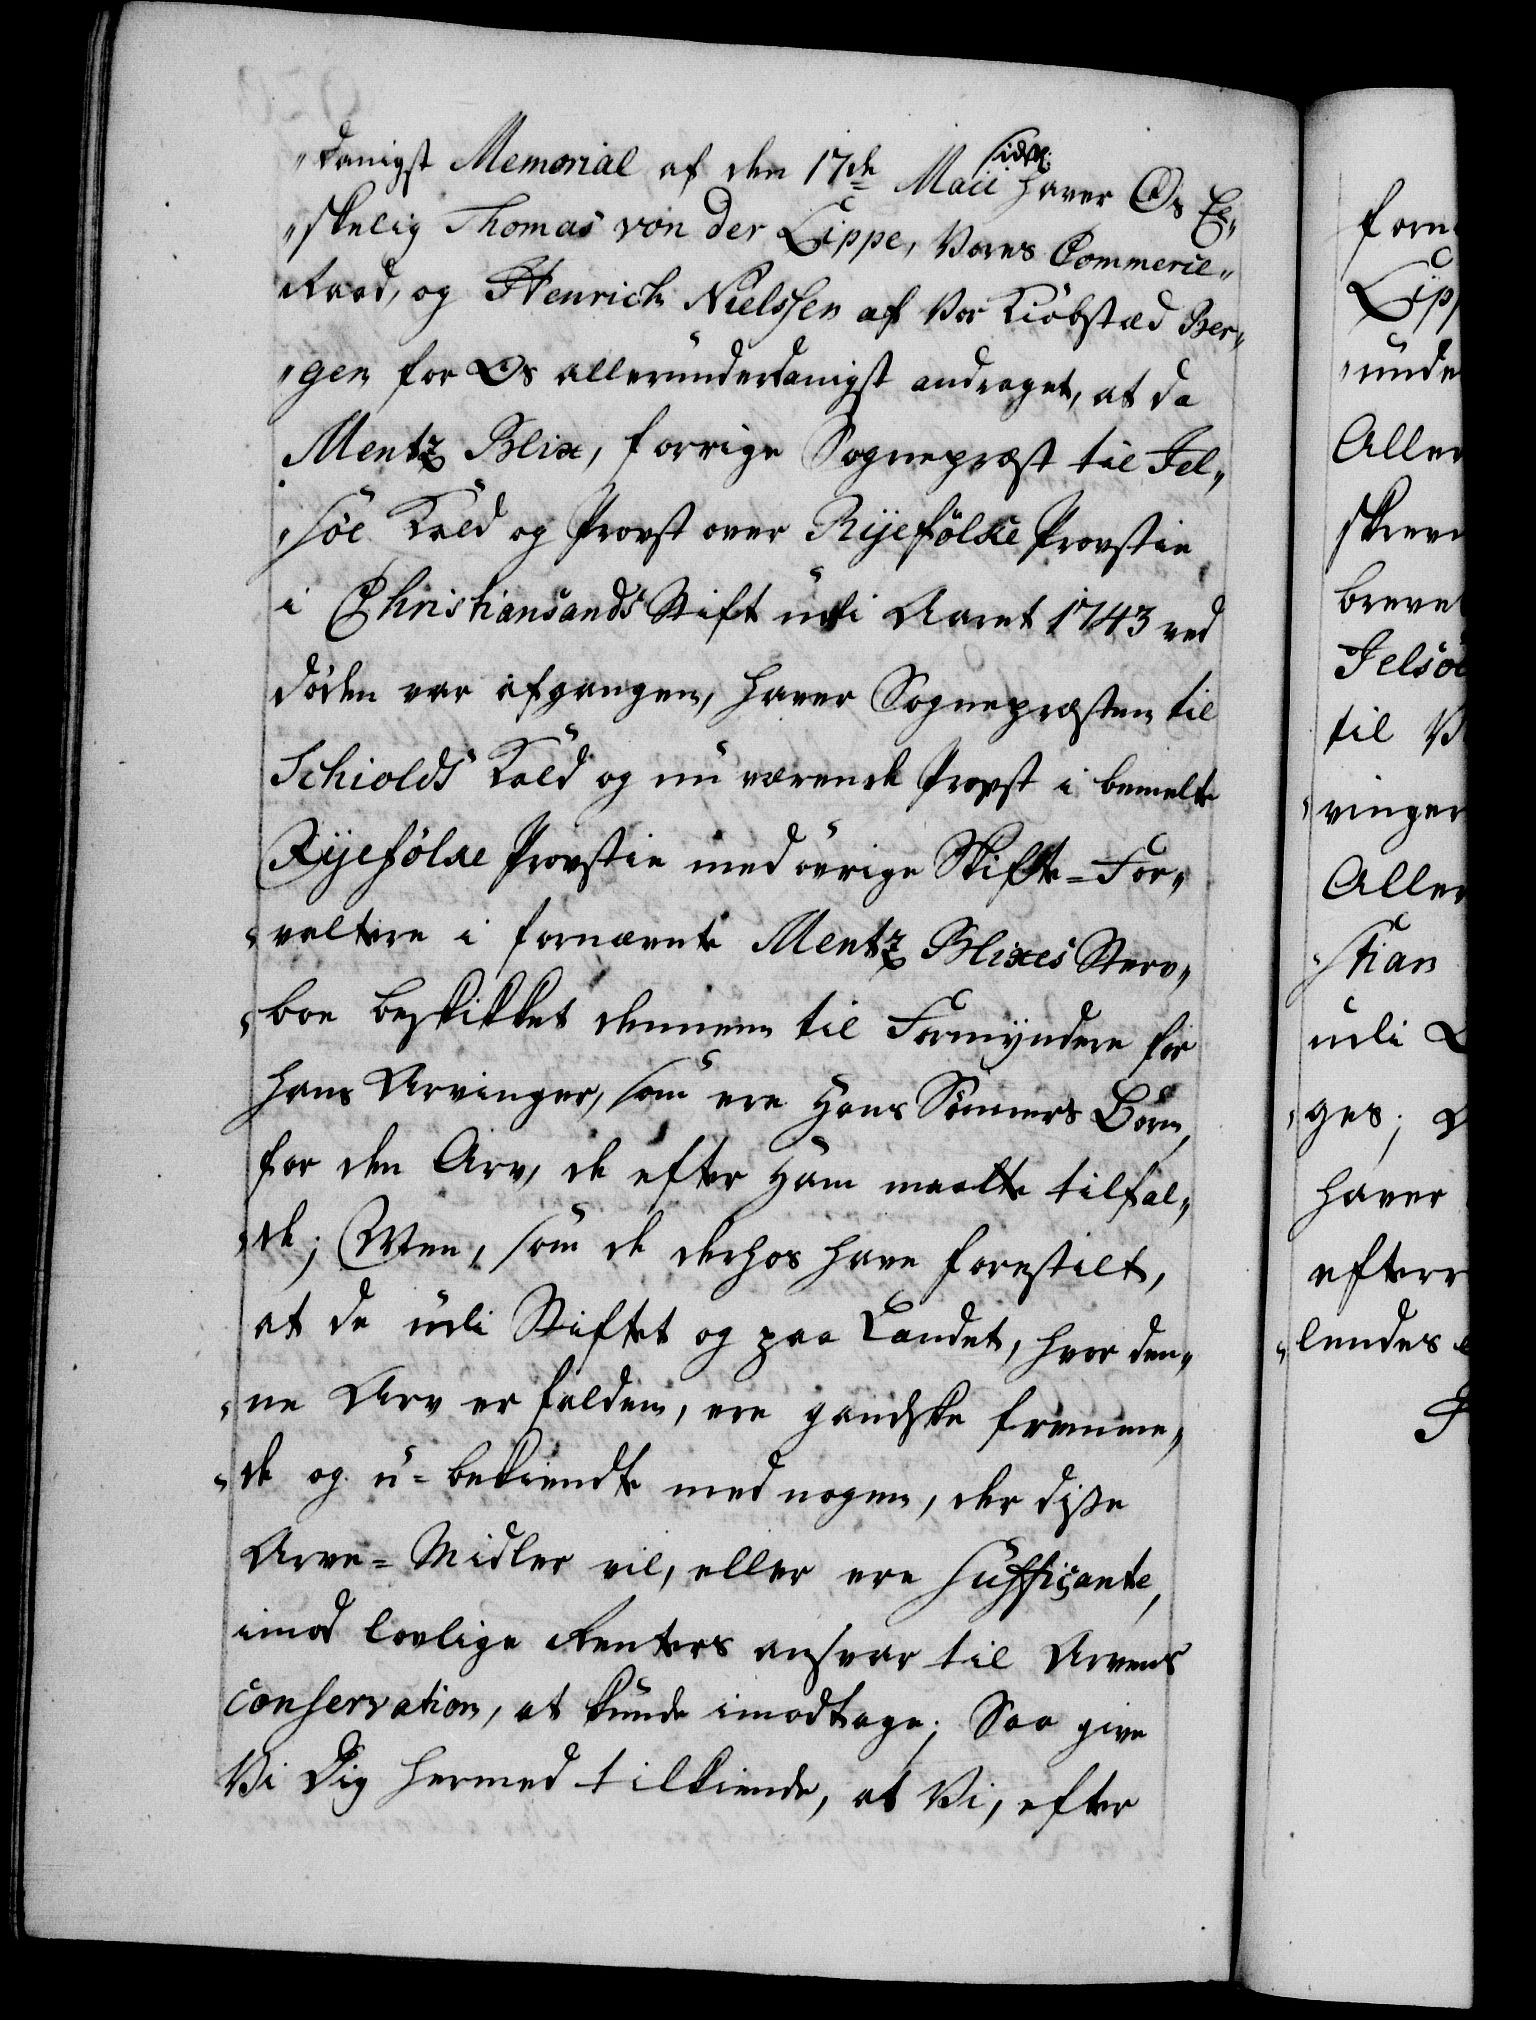 „danigst Memorial af den 17de Maii sidstl: haver Os El„
„skelig Thomas von der Lippe, Vores Commerce„
Raad, og Henrich Nielssen af Vor Kiöbstæd Ber„
„gen for Os allerunderdanigst andraget, at da
Mentz Blix, forrige Sognepræst til Jel„
„söe Kald og Provst over Rijefölke Provstie
i Christiansands Stift udi Aaret 1743 ved
döden var afgangen, haver Sognepræsten til
Schiolds Kald og nu værende Provst i bemelte
Rijefölke Provstie med övrige Skifte-For„
„valtere i fornævnte Mentz Blixes Sterv„
„boe beskikket dennem til Formyndere for
hans Arvinger, som ere Hans Sönners Börn,
for den Arv, de efter Ham maatte tilfal„
„de; Men, som de derhos have forestilt,
at de udi Stiftet og paa Landet, hvor den„
„ne Arv er falden, ere gandske fremme„
„de og u-bekiendte med nogen, der disse
Arve-Midler vil, eller ere sufficante,
imod lovlige Renters ansvar til Arvens
Conservation, at kunde imodtage; Saa give
Vi Dig hermed tilkiende, at Vi, efter
forn
Lipp
„unde
Aller
skrev
breve
Jelsöe
til V
„vinger
Aller
„stian
udi
„ges;
haver
efterr
„lendes